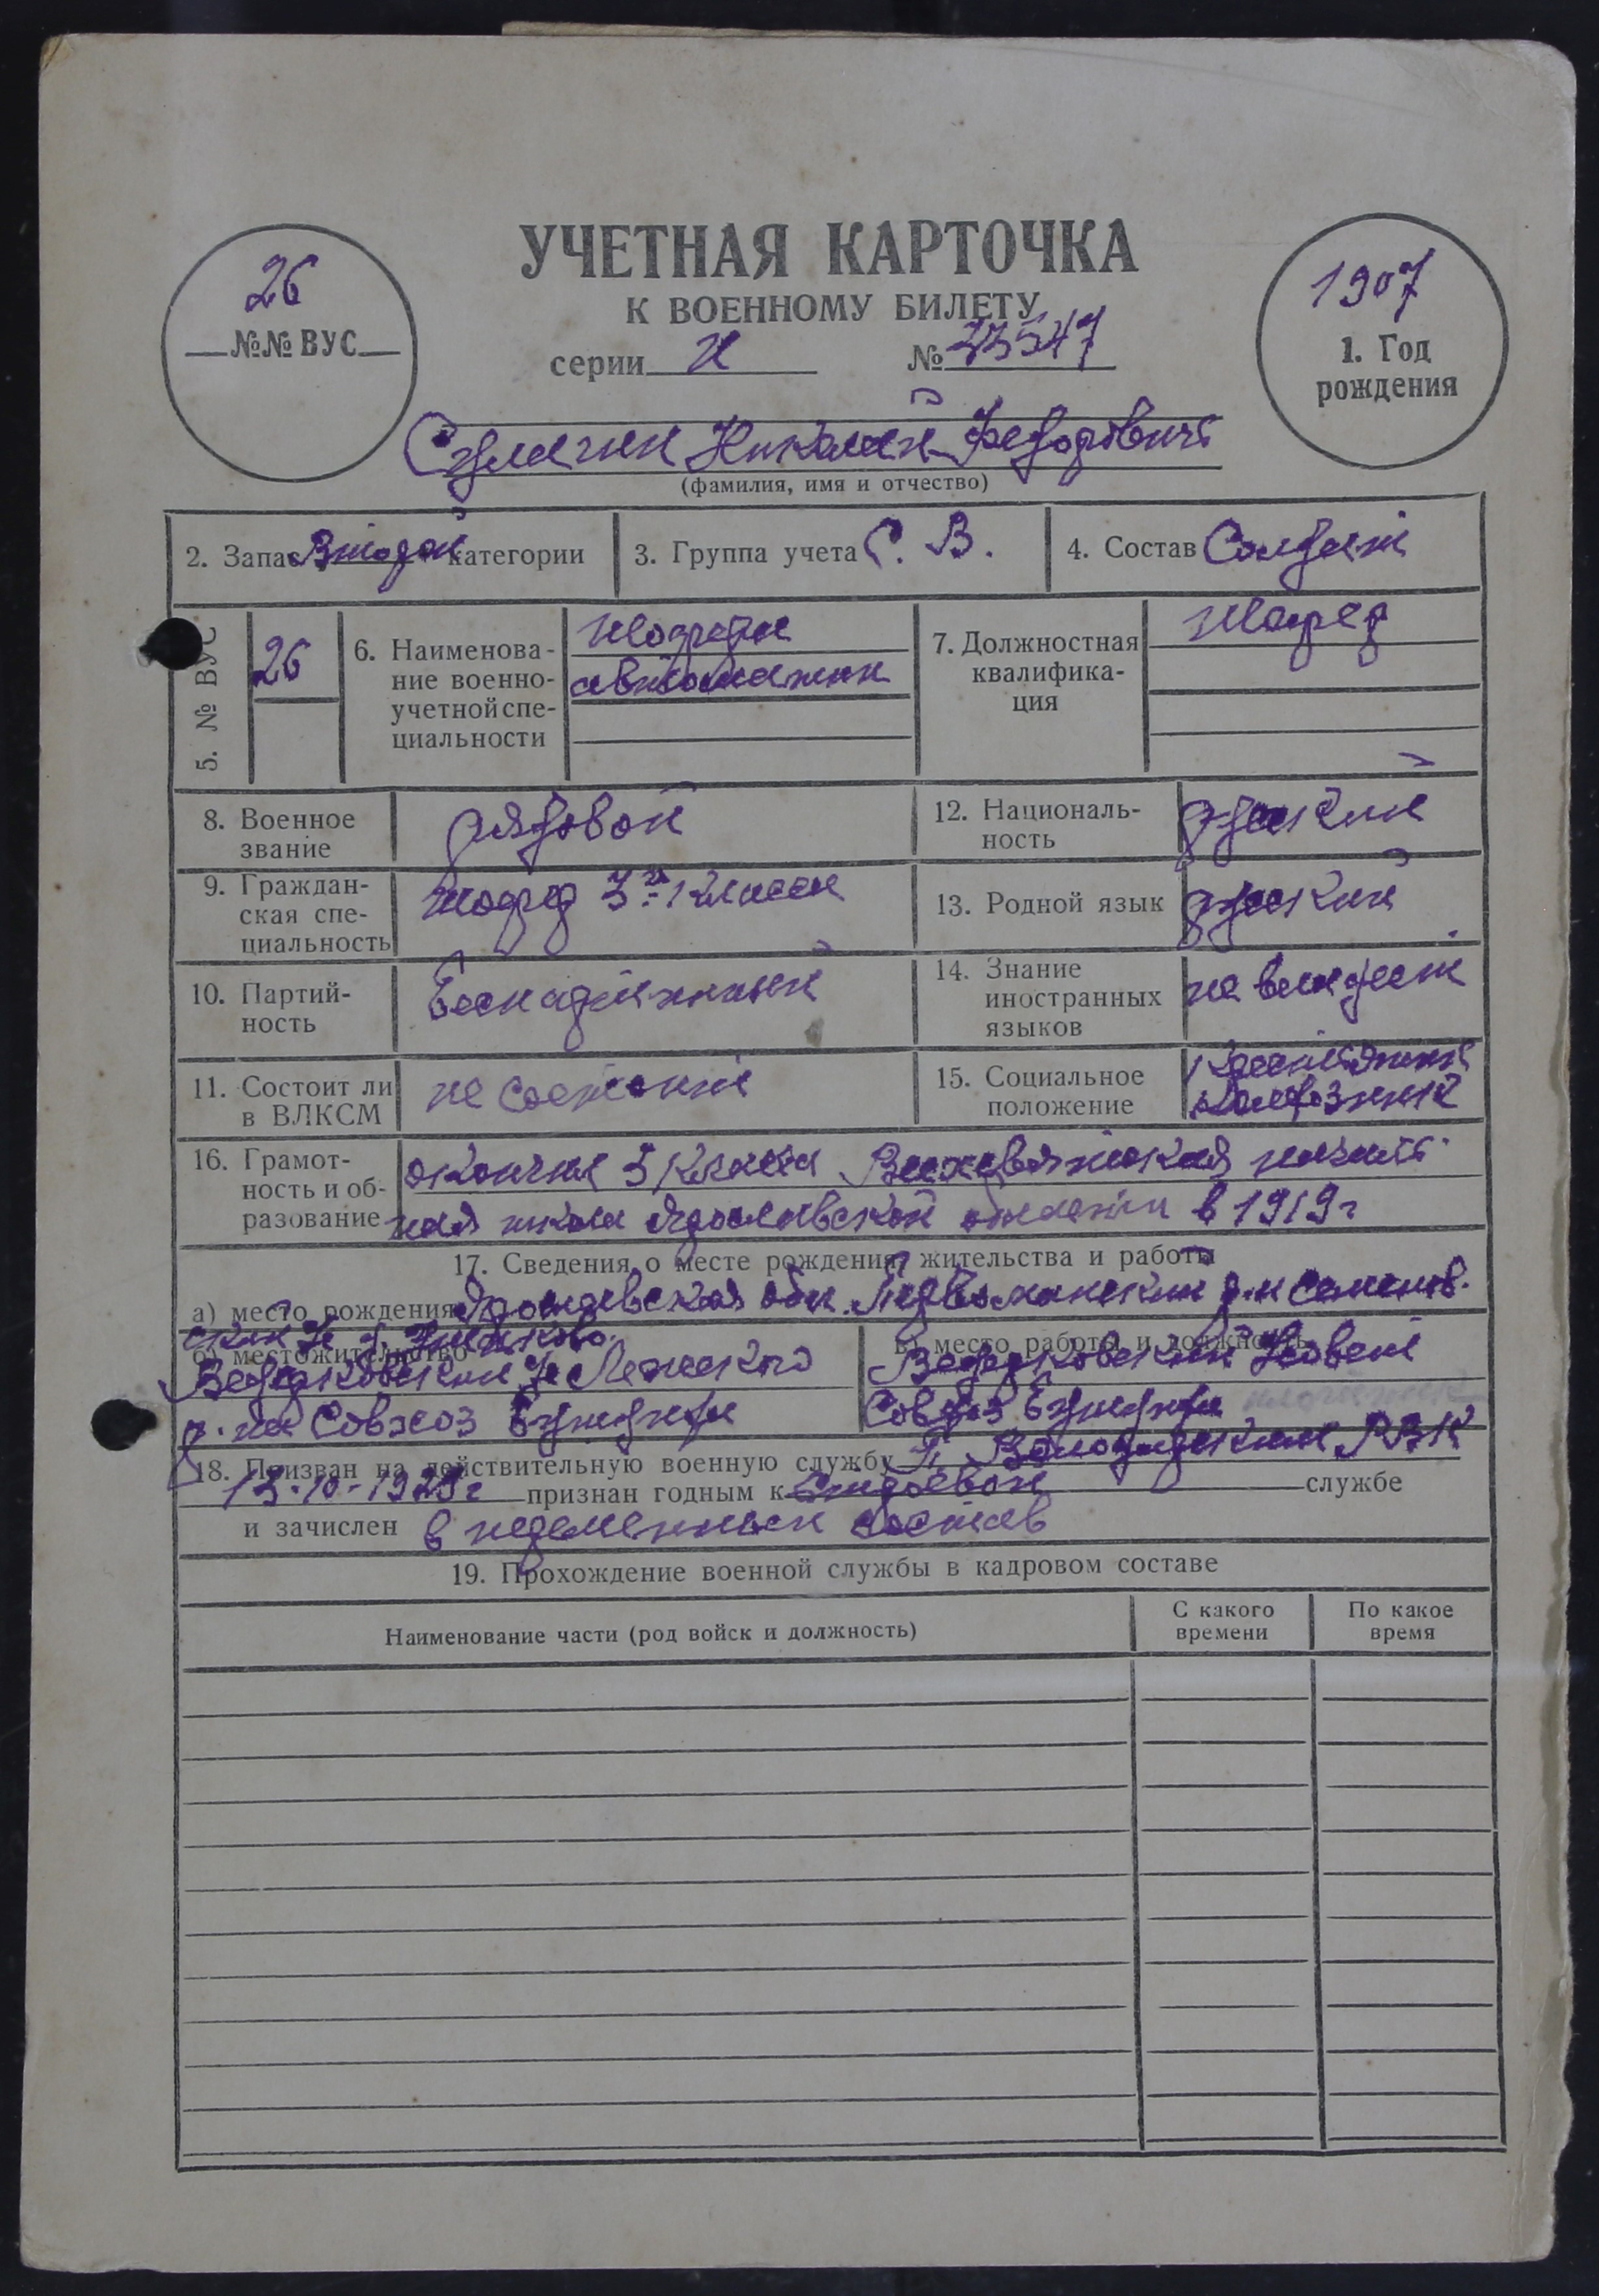 УЧЕТНАЯ КАРТОЧКА
К ВОЕННОМУ БИЛЕТУ
26
№№ ВУС
1907
1. Год
рождения
серии № 33547
Николай Федорович
(фамилия, имя и отчество)
2. Запас Второй категории
3. Группа учета С. В.
4. Состав Солдат
5. № ВУС
26
6. Наименова-
ние военно-
учетной спе-
циальности
шофера
автомашин
7. Должностная
квалифика-
ция
шофер
8. Военное
звание
рядовой
12. Националь-
ность
русский
9. Граждан-
ская спе-
циальность
шофер 3го класса
13. Родной язык
русский
10. Партий-
ность
беспартийный
14. Знание
иностранных
языков
не владеет
11. Состоит ли
в ВЛКСМ
не состоит
15. Социальное
положение
Крестьянин
колхозник
16. Грамот-
ность и об-
разование
окончил 3 класса началь-
ная школа Ярославской области в 1919 г
17. Сведения о месте рождения, жительства и работы
а) место рождения Ярославская обл. Первомайский р-н Семенов.
ский с
б) местожительство
с Лежского
р-на Совхоз
в) место работы и должность
18. Призван на действительную военную службу РВК
13-10-1929 г признан годным к строевой службе
и зачислен в переменный состав
19. Прохождение военной службы в кадровом составе
Наименование части (род войск и должность)
С какого
времени
По какое
время